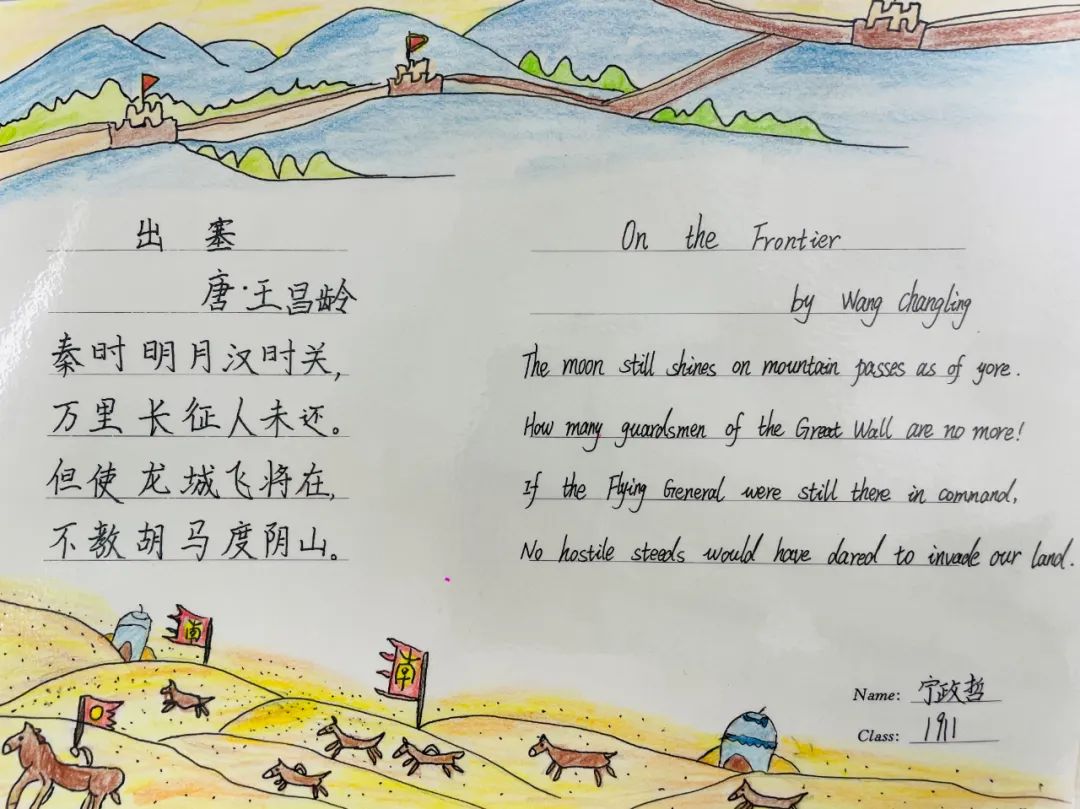 出塞
唐·王昌龄
秦时明月汉时关,
万里长征人未还。
但使龙城飞将在,
不教胡马度阴山。
On the Frontier
by Wang changling
The moon still shines on mountain passes as of yore.
How many guardsmen of the Great Wall are no more!
If the Flying General were still there in command,
No hostile steeds would have dared to invade our land.
南
南
Name: 宁政哲
Class: 1911